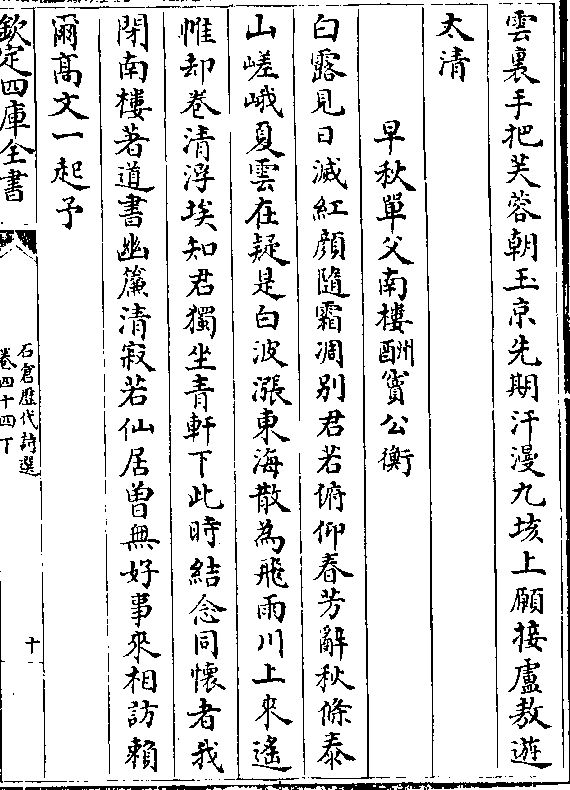 雲裏手把芙蓉朝玉京先期汗漫九垓上願接盧敖遊
太清
早秋單父南樓酬竇公衡
白露見日滅紅顔隨霜凋別君若俯仰春芳辭秋條泰
山嵯峨夏雲在疑是白波漲東海散為飛雨川上來遙
帷却卷清浮埃知君獨坐青軒下此時結念同懷者我
閉南樓著道書幽簾清寂若仙居曾無好事來相訪賴
爾髙文一起予
欽定四庫全書
石倉歷代詩選
卷四十四下
十